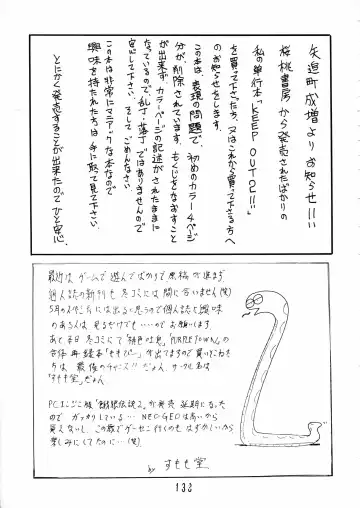 矢追町成増よりお知らせ!!
桜桃書房から発売されたばかりの
私の単行本「KEEP OUT②!!」
を買って下さった方、又はこれから買って下さる方へ
のお知らせをします。
この本は、表現の問題で、初めのカラー4ページ
分が、削除されています。もくじをなおすこと
が出来ず、カラーページの記述がされたままに
なっているので、乱丁、落丁ではありませんので
安心して下さい。そして、ごめんなさい。
この本は非常にマニアックな本なので
興味を持たれた方は手に取って見て下さい。
とにかく発売することが出来たのでひと安心。
最近は、ゲームで遊んでばかりで原稿が進まず
個人誌の新刊も冬コミには間に合いません(笑)
5月のスーパーコミケには出ると思うので個人誌に興味
のある人は見るだけでも…のでお願いします。
あと本日冬コミで「緋色吐息」「PURPLETOWN」の
合体再録本「ももてろ」が出てますので買いそこねた
方は最後のチャンス!!だよん。サークル名は
「すもも堂」だよん。
PCエンジン版「餓狼伝説2」が発売延期になった
のでガッカリしている…NEO・GEOは高いから
買えないし、この歳でゲーセンに行くのもはずかしいから
楽しみにしてたのに…(笑)
by すもも堂
132